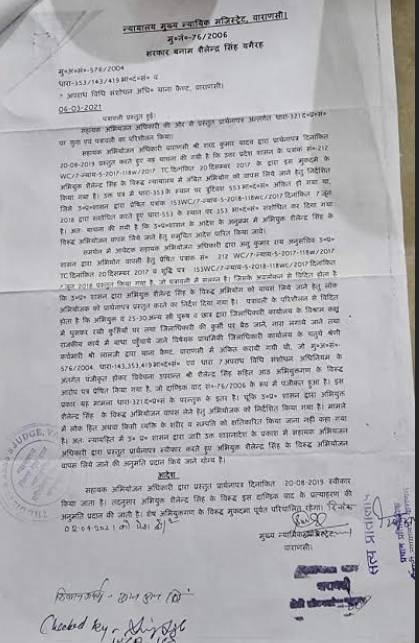 न्यायालय मुख्य न्यायिक मजिस्ट्रेट, वाराणसी।
मु०नं०-76/2006
सरकार बनाम शैलेन्द्र सिंह वगैरह
मु०अ०सं०-576/2004
धारा-353/143/419 भा०द०सं० व
7 अपराध विधि संशोधन अधि० थाना कैण्ट, वाराणसी।
06-03-2021
पत्रावली प्रस्तुत हुई।
सहायक अभियोजन अधिकारी की ओर से प्रस्तुत प्रार्थनापत्र अन्तर्गत धारा-321 द०प्र०सं०
पर सुना एवं पत्रावली का परिशीलन किया।
सहायक अभियोजन अधिकारी वाराणसी श्री यादव द्वारा प्रार्थनापत्र दिनांकित
20-08-2019 प्रस्तुत करते हुए यह याचना की गयी है कि उत्तर प्रदेश शासन के पत्रांक सं०-212
WC/7-न्याय-5-2017-118w/2017 TC दिनांकित 20 दिसम्बर 2017 के द्वारा इस मुकदमे के
अभियुक्त शैलेन्द्र सिंह के विरुद्ध न्यायालय में लंबित अभियोग को वापस लिये जाने हेतु निर्देशित
किया गया है। उक्त पत्र में धारा-353 के स्थान पर त्रुटिवश 553 भा०द०सं० अंकित हो गया था,
जिसे उ०प्र०शासन द्वारा प्रेषित पत्रांक 153WC/7-न्याय-5-2018-118wc/2017 दिनांकित 7 जून
2018 द्वारा संशोधित करते हुए धारा-553 के स्थान पर 353 भा०द०सं० संशोधित कर दिया गया
है। अतः याचना की गयी है कि उ०प्र०शासन के आदेश के अनुक्रम में अभियुक्त शैलेन्द्र सिंह के
विरुद्ध अभियोजन वापस लिये जाने हेतु समुचित आदेश पारित किया जावे।
समर्थन में आवेदक सहायक अभियोजन अधिकारी द्वारा अनु कुमार राय अनुसचिव उ०प्र०
शासन द्वारा अभियोग वापसी हेतु प्रेषित पत्र सं० 212 WC/7-न्याय-5-2017-118w/2017
TC दिनांकित 20 दिसम्बर 2017 व शुद्धि पत्र 153WC/7-न्याय-5-2018-118wc/2017 दिनांकित
7 जून 2018 प्रस्तुत किया गया है, जो पत्रावली में संलग्न है। जिसके अवलोकन से विदित होता है
कि उ०प्र०शासन द्वारा अभियुक्त शैलेन्द्र सिंह के विरुद्ध अभियोग को वापस लिये जाने हेतु लोक
अभियोजक को प्रार्थनापत्र प्रस्तुत करने का निर्देश दिया गया है। पत्रावली के परिशीलन से विदित
होता है कि अभियुक्त व 25-30 अन्य स्त्री पुरुष व छात्र द्वारा जिलाधिकारी कार्यालय के विश्राम कक्ष
में घुसकर रखी कुर्सियों पर तथा जिलाधिकारी की कुर्सी पर बैठ जाने, नारा लगाये जाने तथा
राजकीय कार्य में बाधा पहुँचाये जाने विषयक प्राथमिकी जिलाधिकारी कार्यालय के चतुर्थ श्रेणी
कर्मचारी श्री लालजी द्वारा थाना कैण्ट, वाराणसी में अंकित करायी गयी थी, जो मु०अ०सं०-
576/2004, धारा-143,353,419 भा०द०सं० एवं धारा 7 अपराध विधि संशोधन अधिनियम के
अंतर्गत पंजीकृत होकर विवेचना उपरान्त श्री शैलेन्द्र सिंह सहित आठ अभियुक्तगण के विरुद्ध
आरोप पत्र प्रेषित किया गया है, जो दाण्डिक वाद सं०-76/2006 के रूप में पंजीकृत हुआ है। इस
प्रकार यह मामला धारा-321 द०प्र०सं० के परन्तुक से इतर है। चूंकि उ०प्र० शासन द्वारा अभियुक्त
शैलेन्द्र सिंह के विरुद्ध अभियोजन वापस लेने हेतु अभियोजक को निर्देशित किया गया है। मामले
में लोक हित अथवा किसी व्यक्ति के शरीर व सम्पत्ति को क्षतिकारित किया जाना नहीं कहा गया
है। अतः न्यायहित में उ० प्र० शासन द्वारा जारी उक्त शासनादेश के प्रकाश में सहायक अभियोजन
अधिकारी द्वारा प्रस्तुत प्रार्थनापत्र स्वीकार करते हुए अभियुक्त शैलेन्द्र सिंह के विरुद्ध अभियोजन
वापस लिये जाने की अनुमति प्रदान किये जाने योग्य है।
आदेश
सहायक अभियोजन अधिकारी द्वारा प्रस्तुत प्रार्थनापत्र दिनांकित 20-08-2019 स्वीकार
किया जाता है। तद्नुसार अभियुक्त शैलेन्द्र सिंह के विरुद्ध इस दाण्डिक वाद के प्रत्याहरण की
अनुमति प्रदान की जाती है। शेष अभियुक्तगण के विरुद्ध मुकदमा पूर्ववत परिचालित रहेगा। दिनांक
02-04-2021 को पेश हो।
मुख्य न्यायिक मजिस्ट्रेट,
वाराणसी।
सत्य प्रतिलिपि
Checked by -